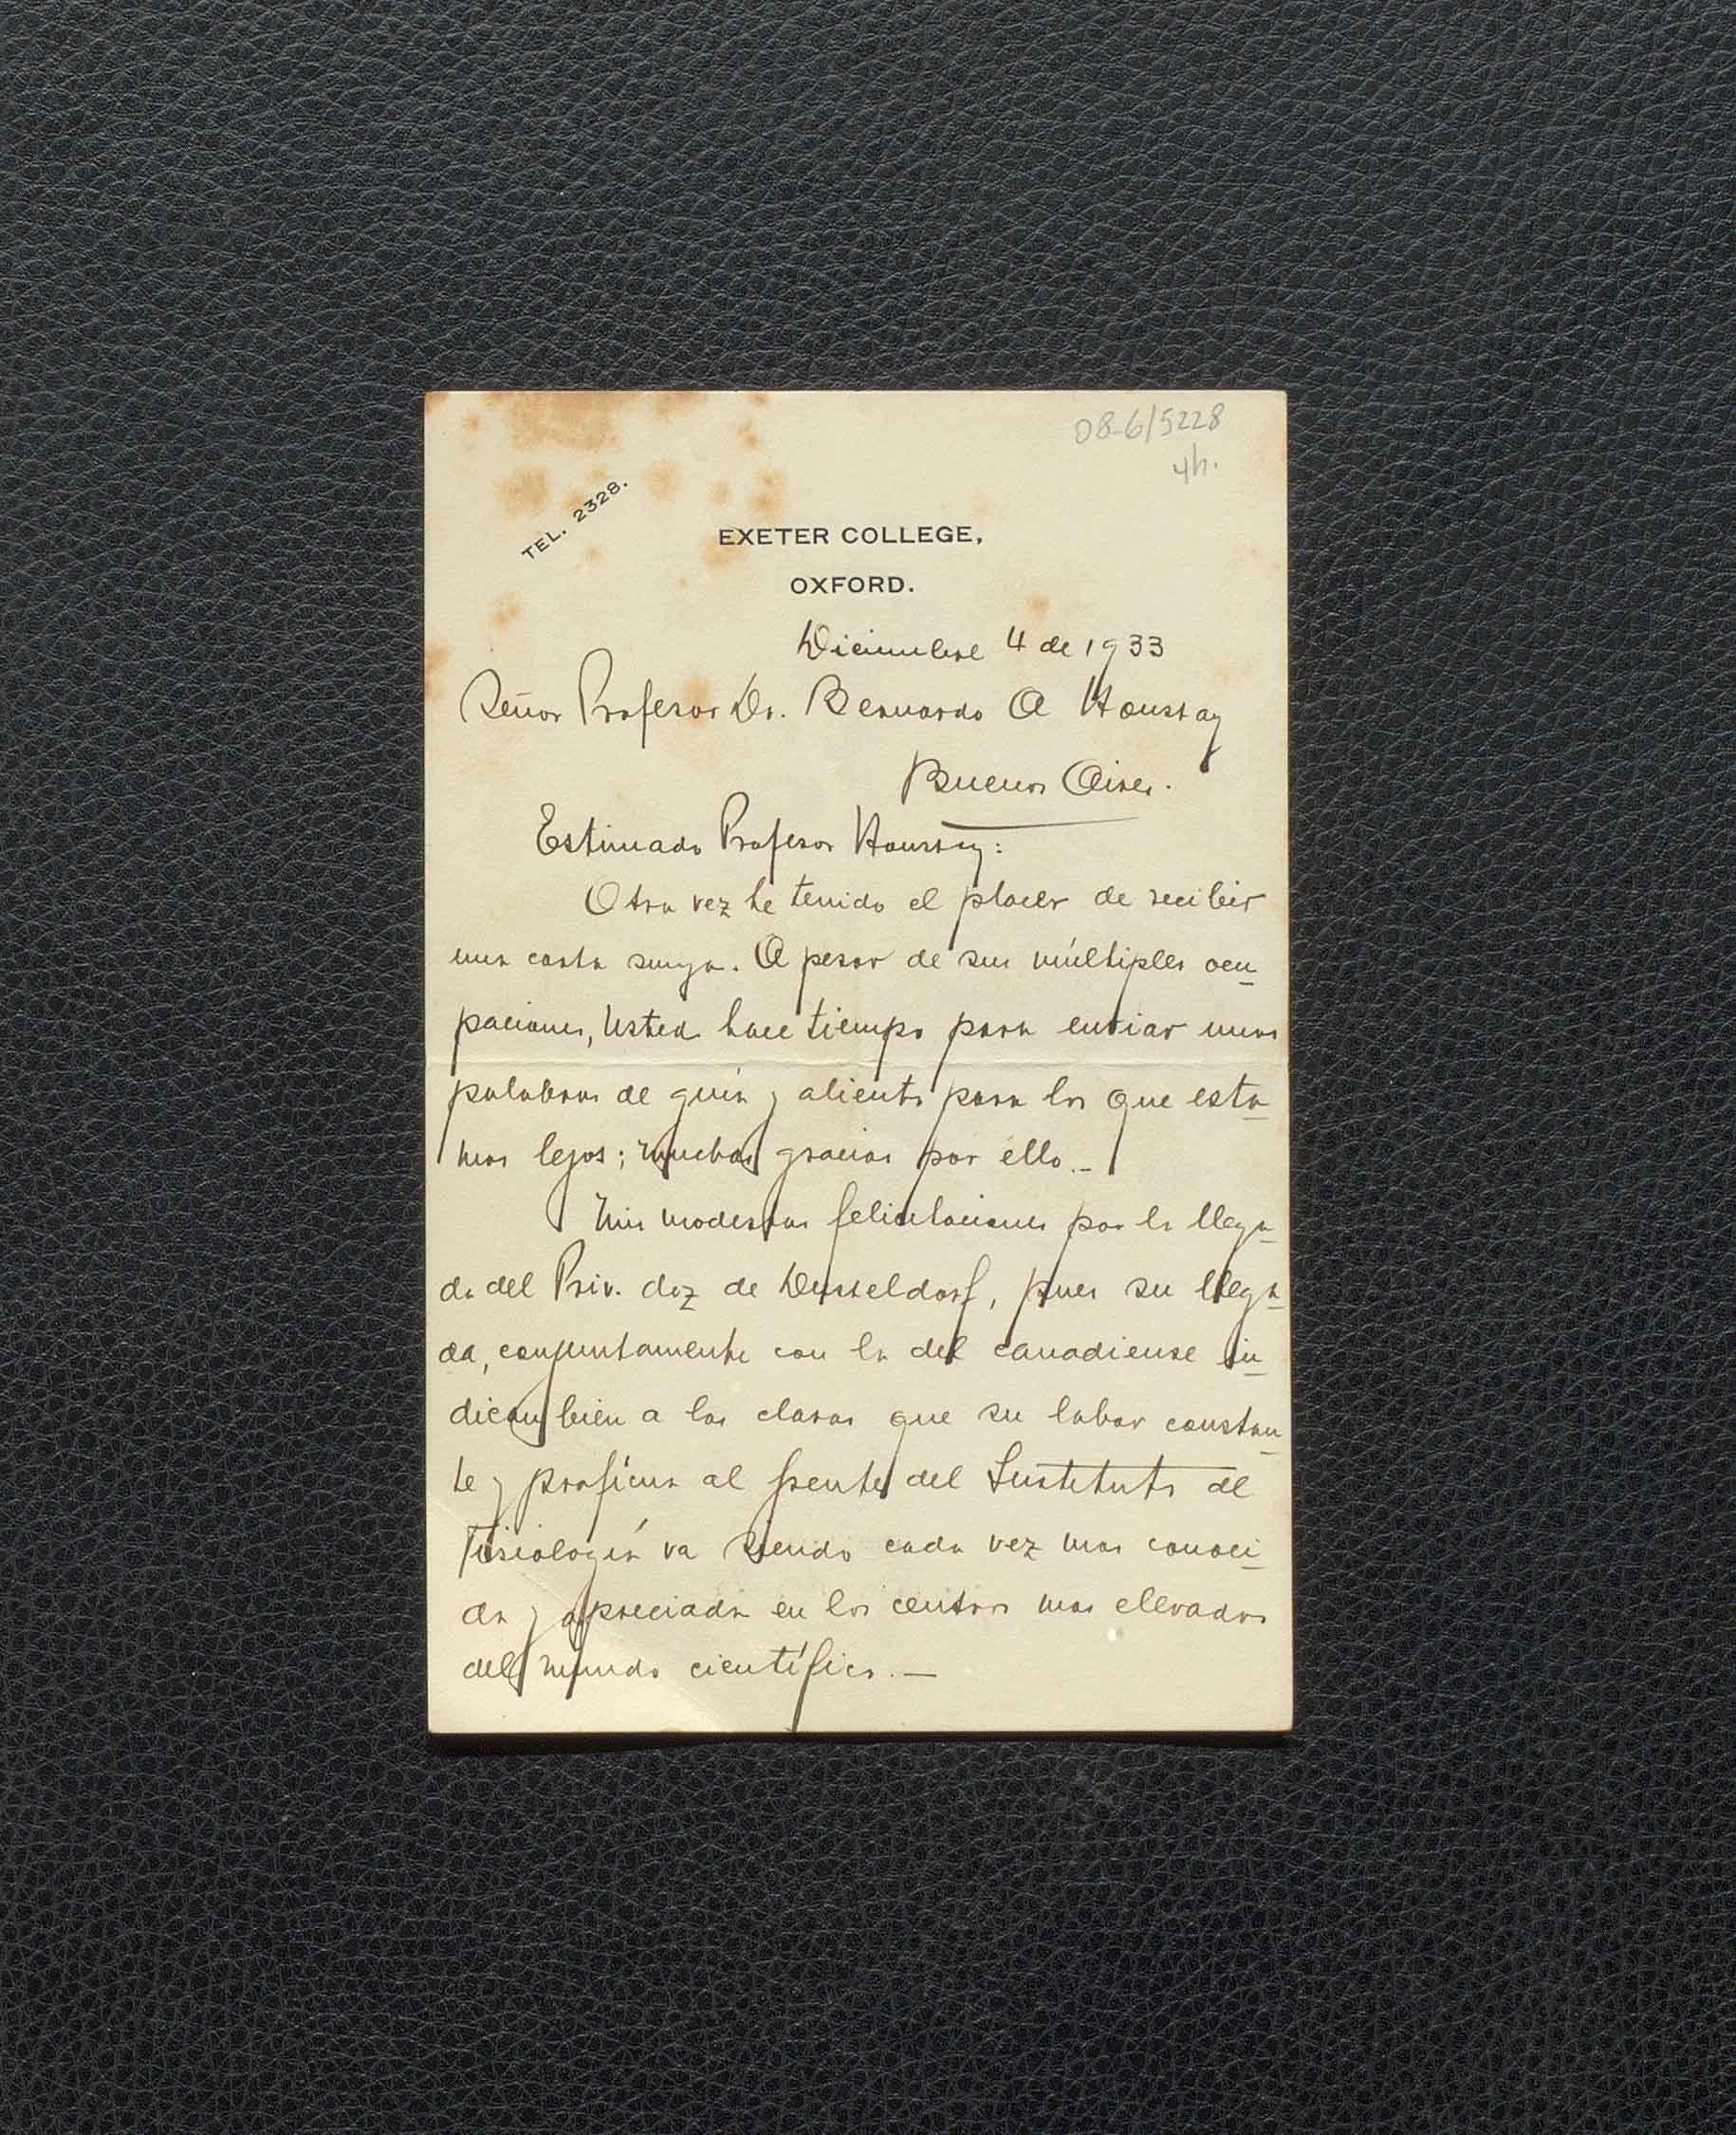 08-6/5228
4h.
TEL. 2328.
EXETER COLLEGE,
OXFORD.
Diciembre 4 de 1933
Señor Profesor Dr. Bernardo A Houssay
Buenos Aires.
Estimado Profesor Houssay:
Otra vez he tenido el placer de recibir
una carta suya. A pesar de sus múltiples ocu
paciones, Usted hace tiempo para enviar unas
palabras de guía y aliento para los que esta
mos lejos; muchas gracias por ello.-
Mis modestas felicitaciones por la llega
da del Priv. doz de Dusseldorf, pues su llega
da, conjuntamente con la del canadiense in
dican bien a las claras que su labor constan
te y profícua al frente del Instituto de
Fisiología va siendo cada vez mas conoci
da y apreciada en los centros mas elevados
del mundo científico.—